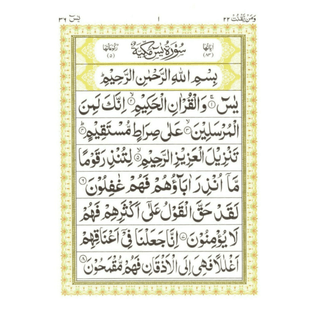 يٰسٓ ٣٦ ١ وَمَنْ يَّقْنُتْ ٢٢
اٰيَاتُهَا (٨٣) سُوْرَةُ يٰسٓ مَكِّيَّةٌ رُكُوْعَاتُهَا (٥)
بِسْمِ اللّٰهِ الرَّحْمٰنِ الرَّحِيْمِ
يٰسٓ ۝١ وَالْقُرْاٰنِ الْحَكِيْمِ ۝٢ اِنَّكَ لَمِنَ
الْمُرْسَلِيْنَ ۝٣ عَلٰى صِرَاطٍ مُّسْتَقِيْمٍ ۝٤
تَنْزِيْلَ الْعَزِيْزِ الرَّحِيْمِ ۝٥ لِتُنْذِرَ قَوْمًا
مَّاۤ اُنْذِرَ اٰبَآؤُهُمْ فَهُمْ غٰفِلُوْنَ ۝٦
لَقَدْ حَقَّ الْقَوْلُ عَلٰۤى اَكْثَرِهِمْ فَهُمْ
لَا يُؤْمِنُوْنَ ۝٧ اِنَّا جَعَلْنَا فِيْۤ اَعْنَاقِهِمْ
اَغْلٰلًا فَهِيَ اِلَى الْاَذْقَانِ فَهُمْ مُّقْمَحُوْنَ ۝٨